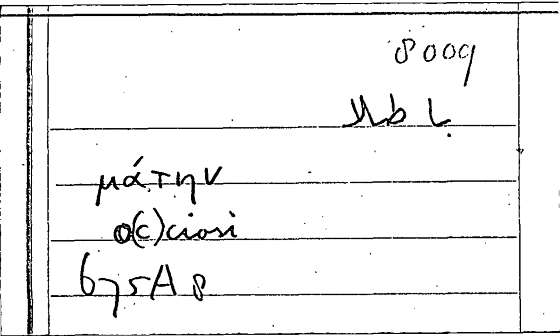 8009
باطلا
μάτην
o(c)ciosi
675A8